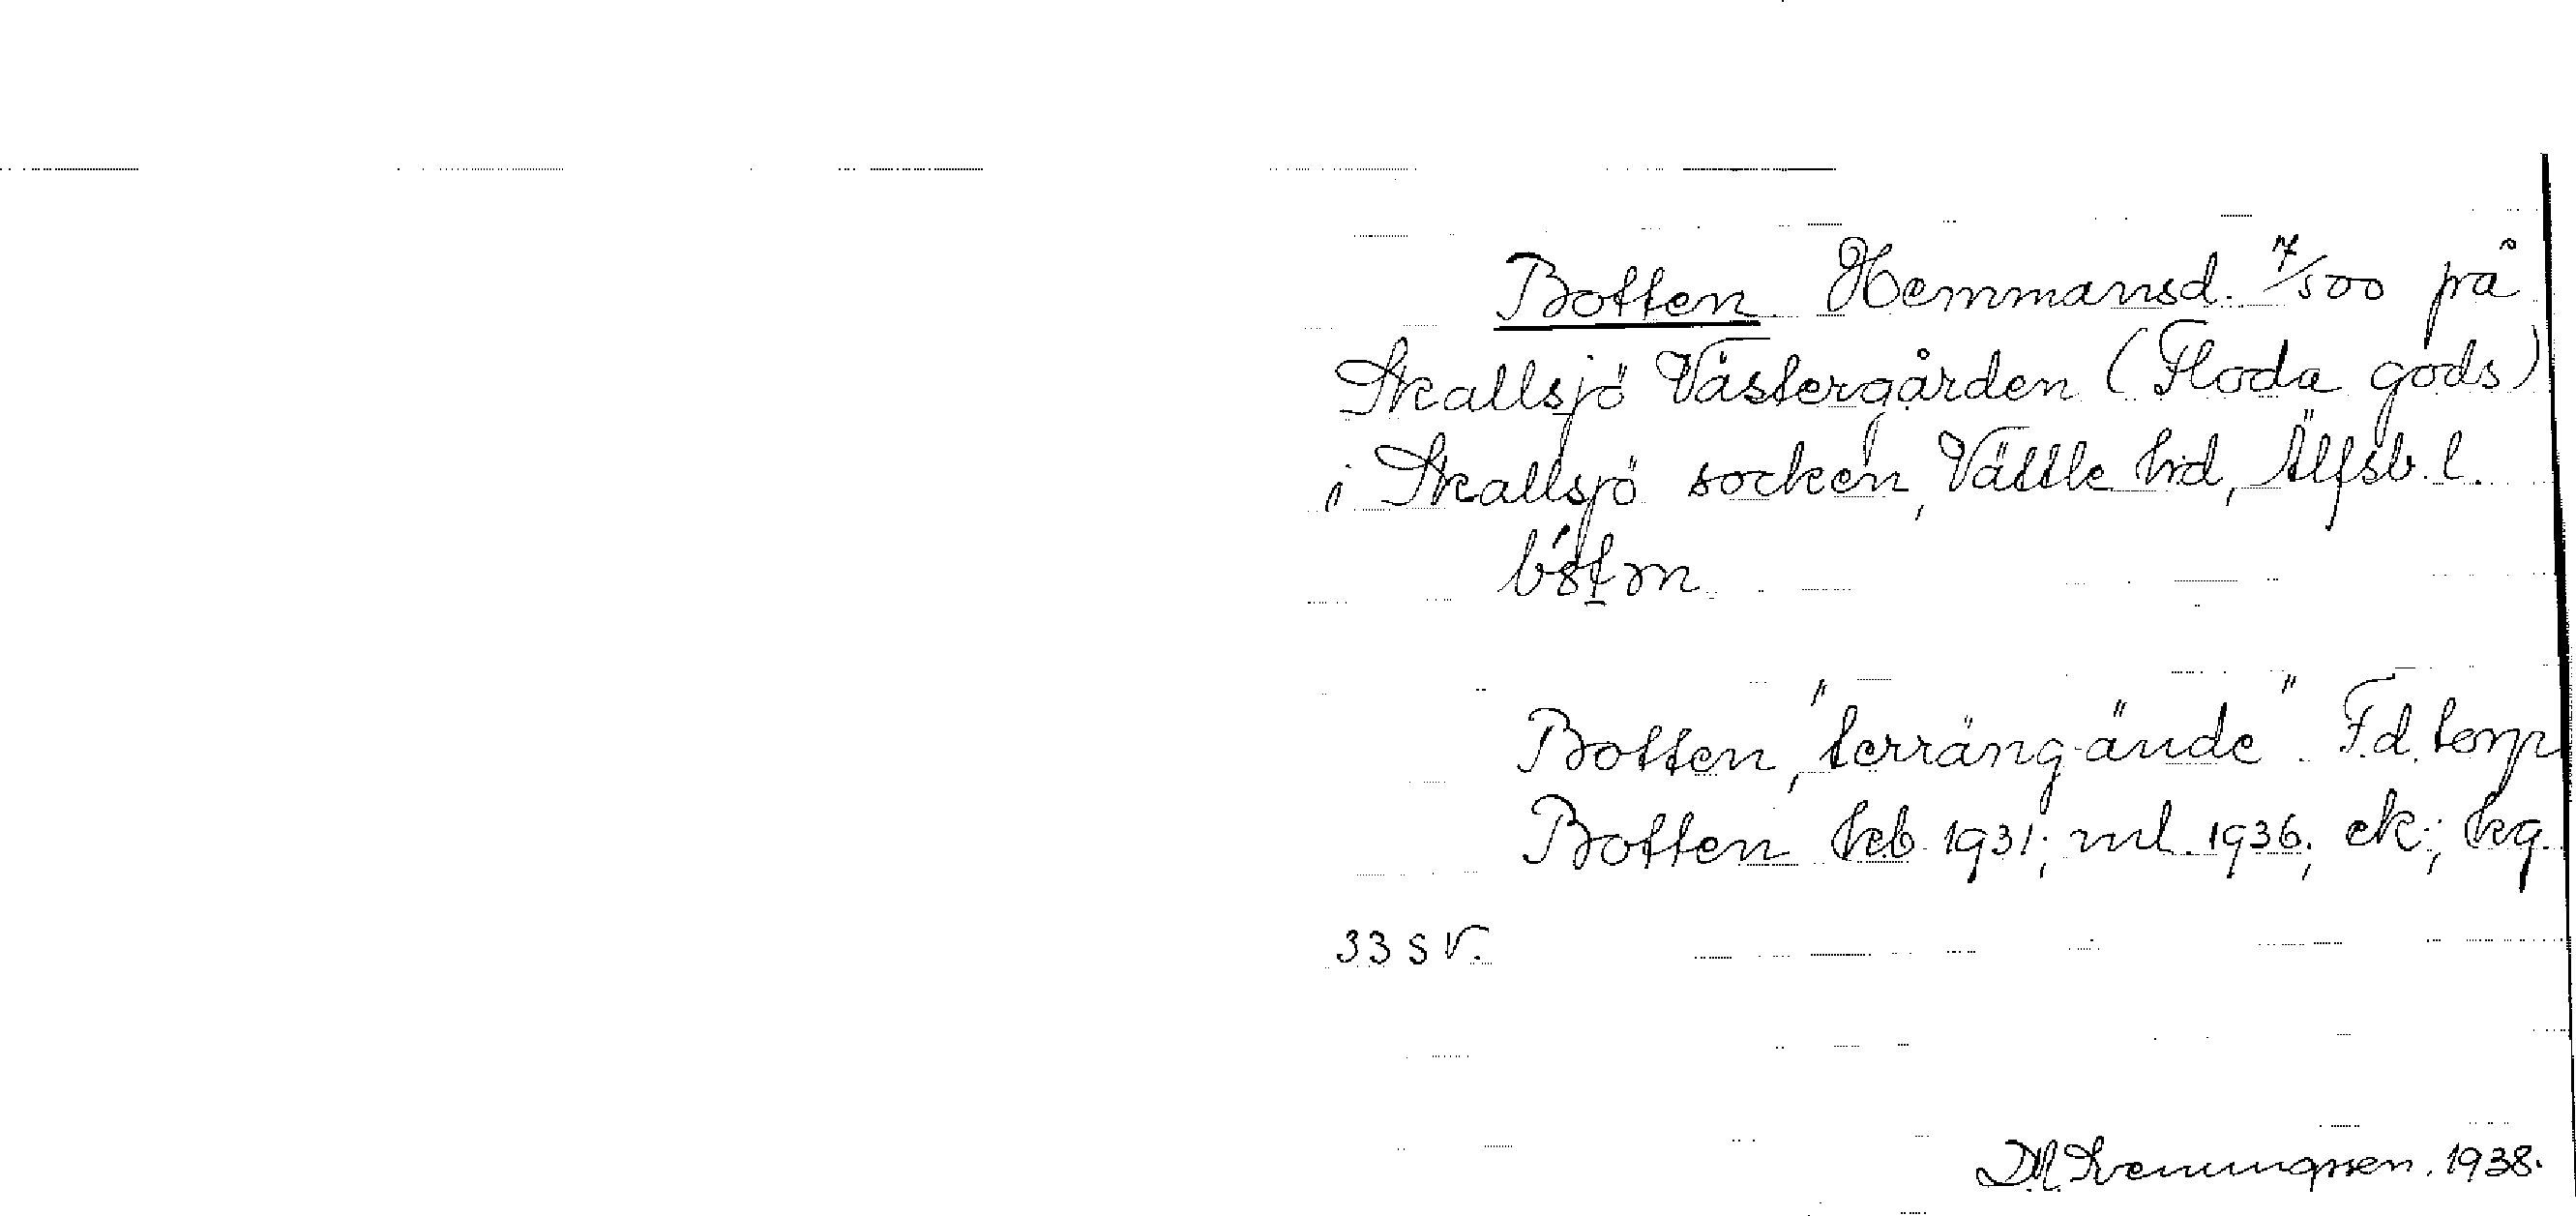 Botten Hemmansd. 7/500 på
Skallsjö Västergården (Floda gods)
i Skallsjö socken, Vättle hd, Älfsb. l.
Botten, "terräng-ände". F.d. torp
Botten kb 1931; ml. 1936; ek; kg.
33 S V.
1938.